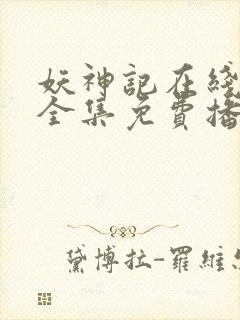 妖神記在綫
全集免費播
黛博拉-羅維